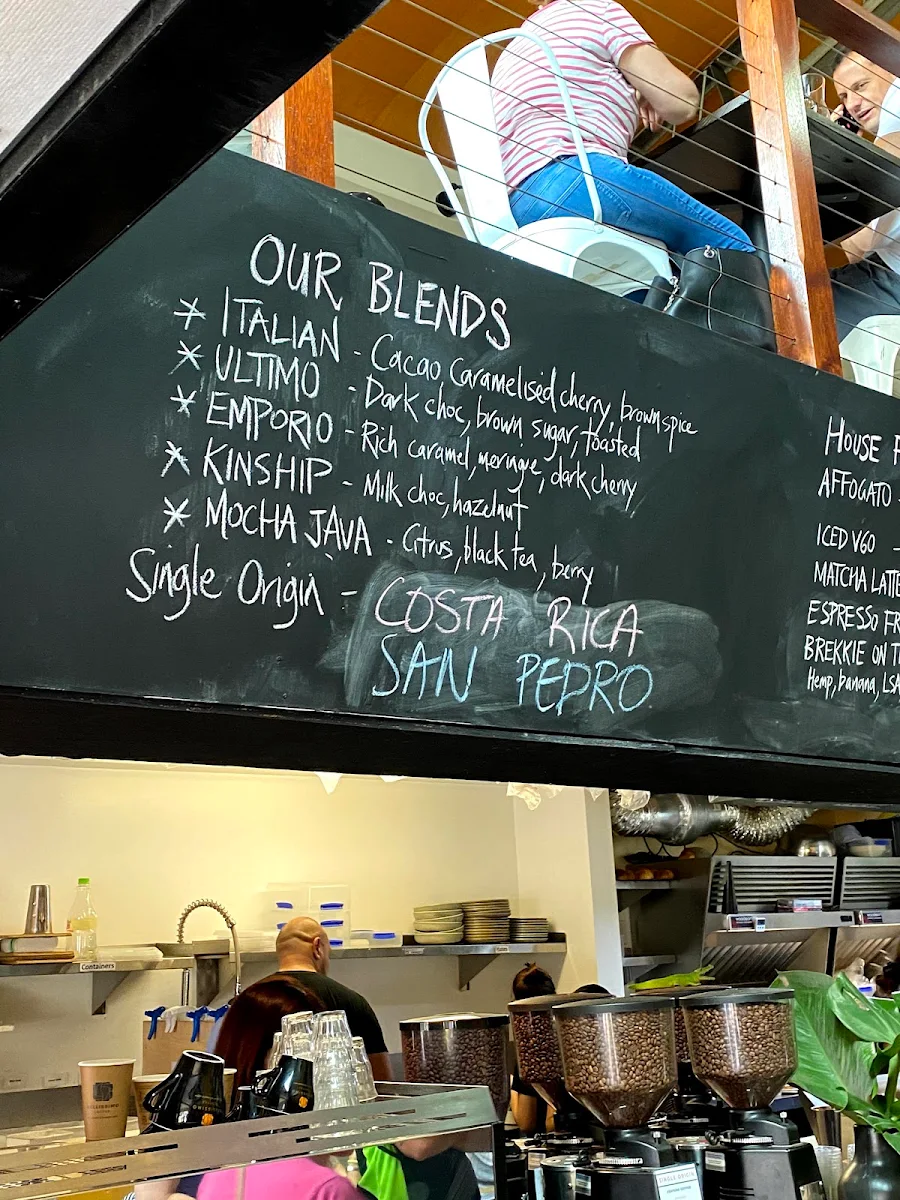 OUR BLENDS
* ITALIAN - Cacao, Caramelised cherry, brown spice
* ULTIMO - Dark choc, brown sugar, toasted
* EMPORIO - Rich caramel, meringue, dark cherry
* KINSHIP - Milk choc, hazelnut
* MOCHA JAVA - Citrus, black tea, berry
Single Origin - COSTA RICA
SAN PEDRO
HOUSE
AFFOGATO -
ICED V60 -
MATCHA LATTE
ESPRESSO FR
BREKKIE ON T
Hemp, banana, LSA
Containers
SINGLE ORIGIN